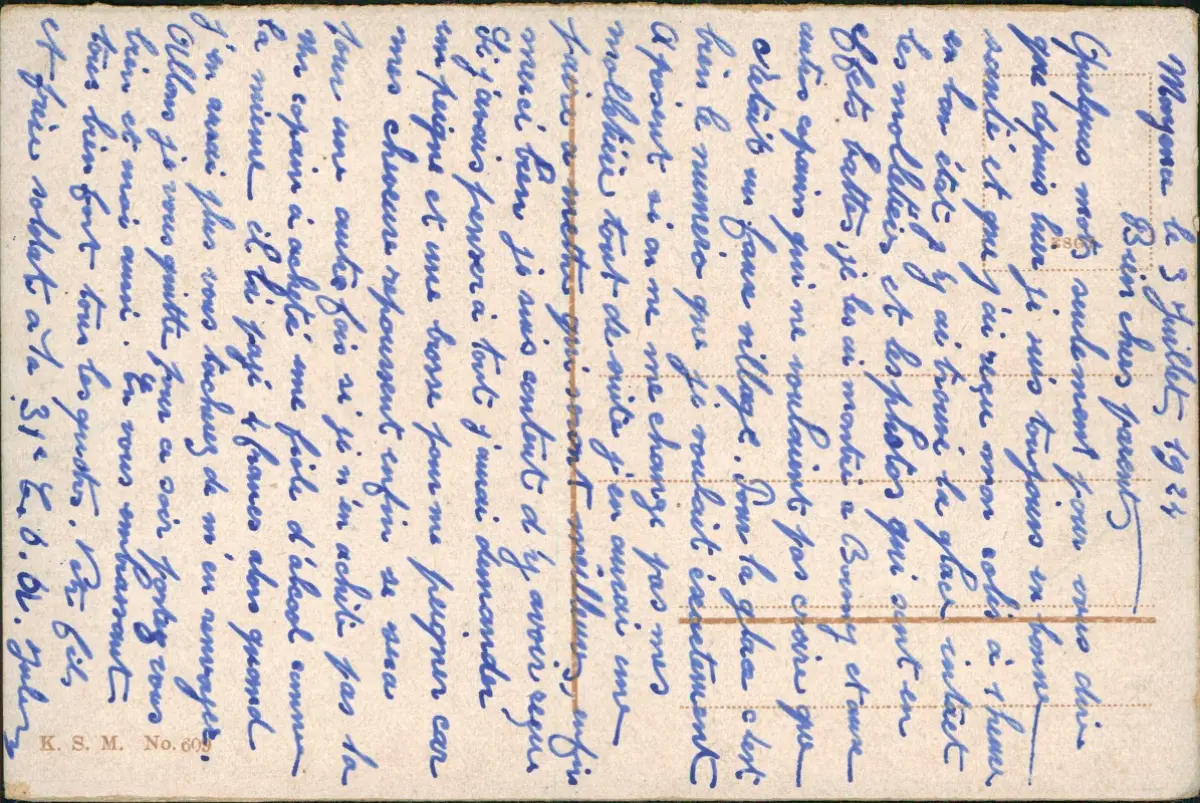 le 3 Juillet 1924
Bien chers parents
Quelques mots seulement pour vous dire
que depuis hier je suis toujours en bonne
santé et que j'ai reçu mon colis à 7 heure
en bon état j'y ai trouvé la glace intact
les molletière et les photos qui sont en
effets battes je les ai montré a Bouvry et aux
autes copains qui ne voulaient pas croire que
c'etait un village. Pour la glace c'est
bien le numéro que je voulait exactement
A présent si on me change pas mes
molletière tout de suite j'en aurai une
paire a mettre qui sont meilleures, enfin
merci bien je suis content d'y avoir reçu
Si j'avais penser a tout j'aurai demander
un peigne et une brosse pour me peigner car
mes cheveux repoussent enfin se sera
pour une autre fois si je n'en achète pas la
Un copain à acheté une fiole d'alcool comme
la mienne il l'a payé 4 francs alors quand
j'en aurai plus vous tacherez de m'en envoyer.
Allons je vous quitte pour ce soir portez vous
bien et moi aussi. En vous embrassant
tous bien fort tous les quatres. Votre fils
et frère soldat à la 31e C. O. A. Jules
2809
K. S. M. No. 609